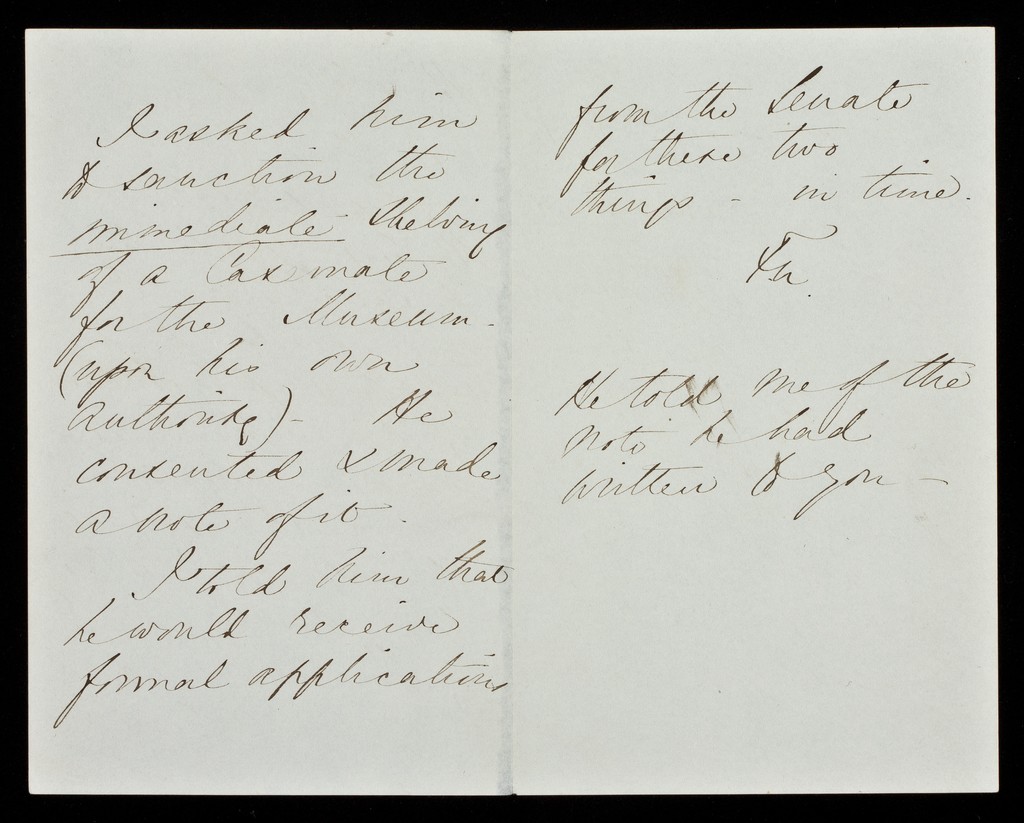 I asked him
to sanction the
immediate shelving
of a Casemate
for the Museum -
(upon his own
authority) - He
consented & made
a note of it.
I told him that
he would receive
formal applications
from the Senate
for these two
things - in time.
He told me of the
note he had
written to you -